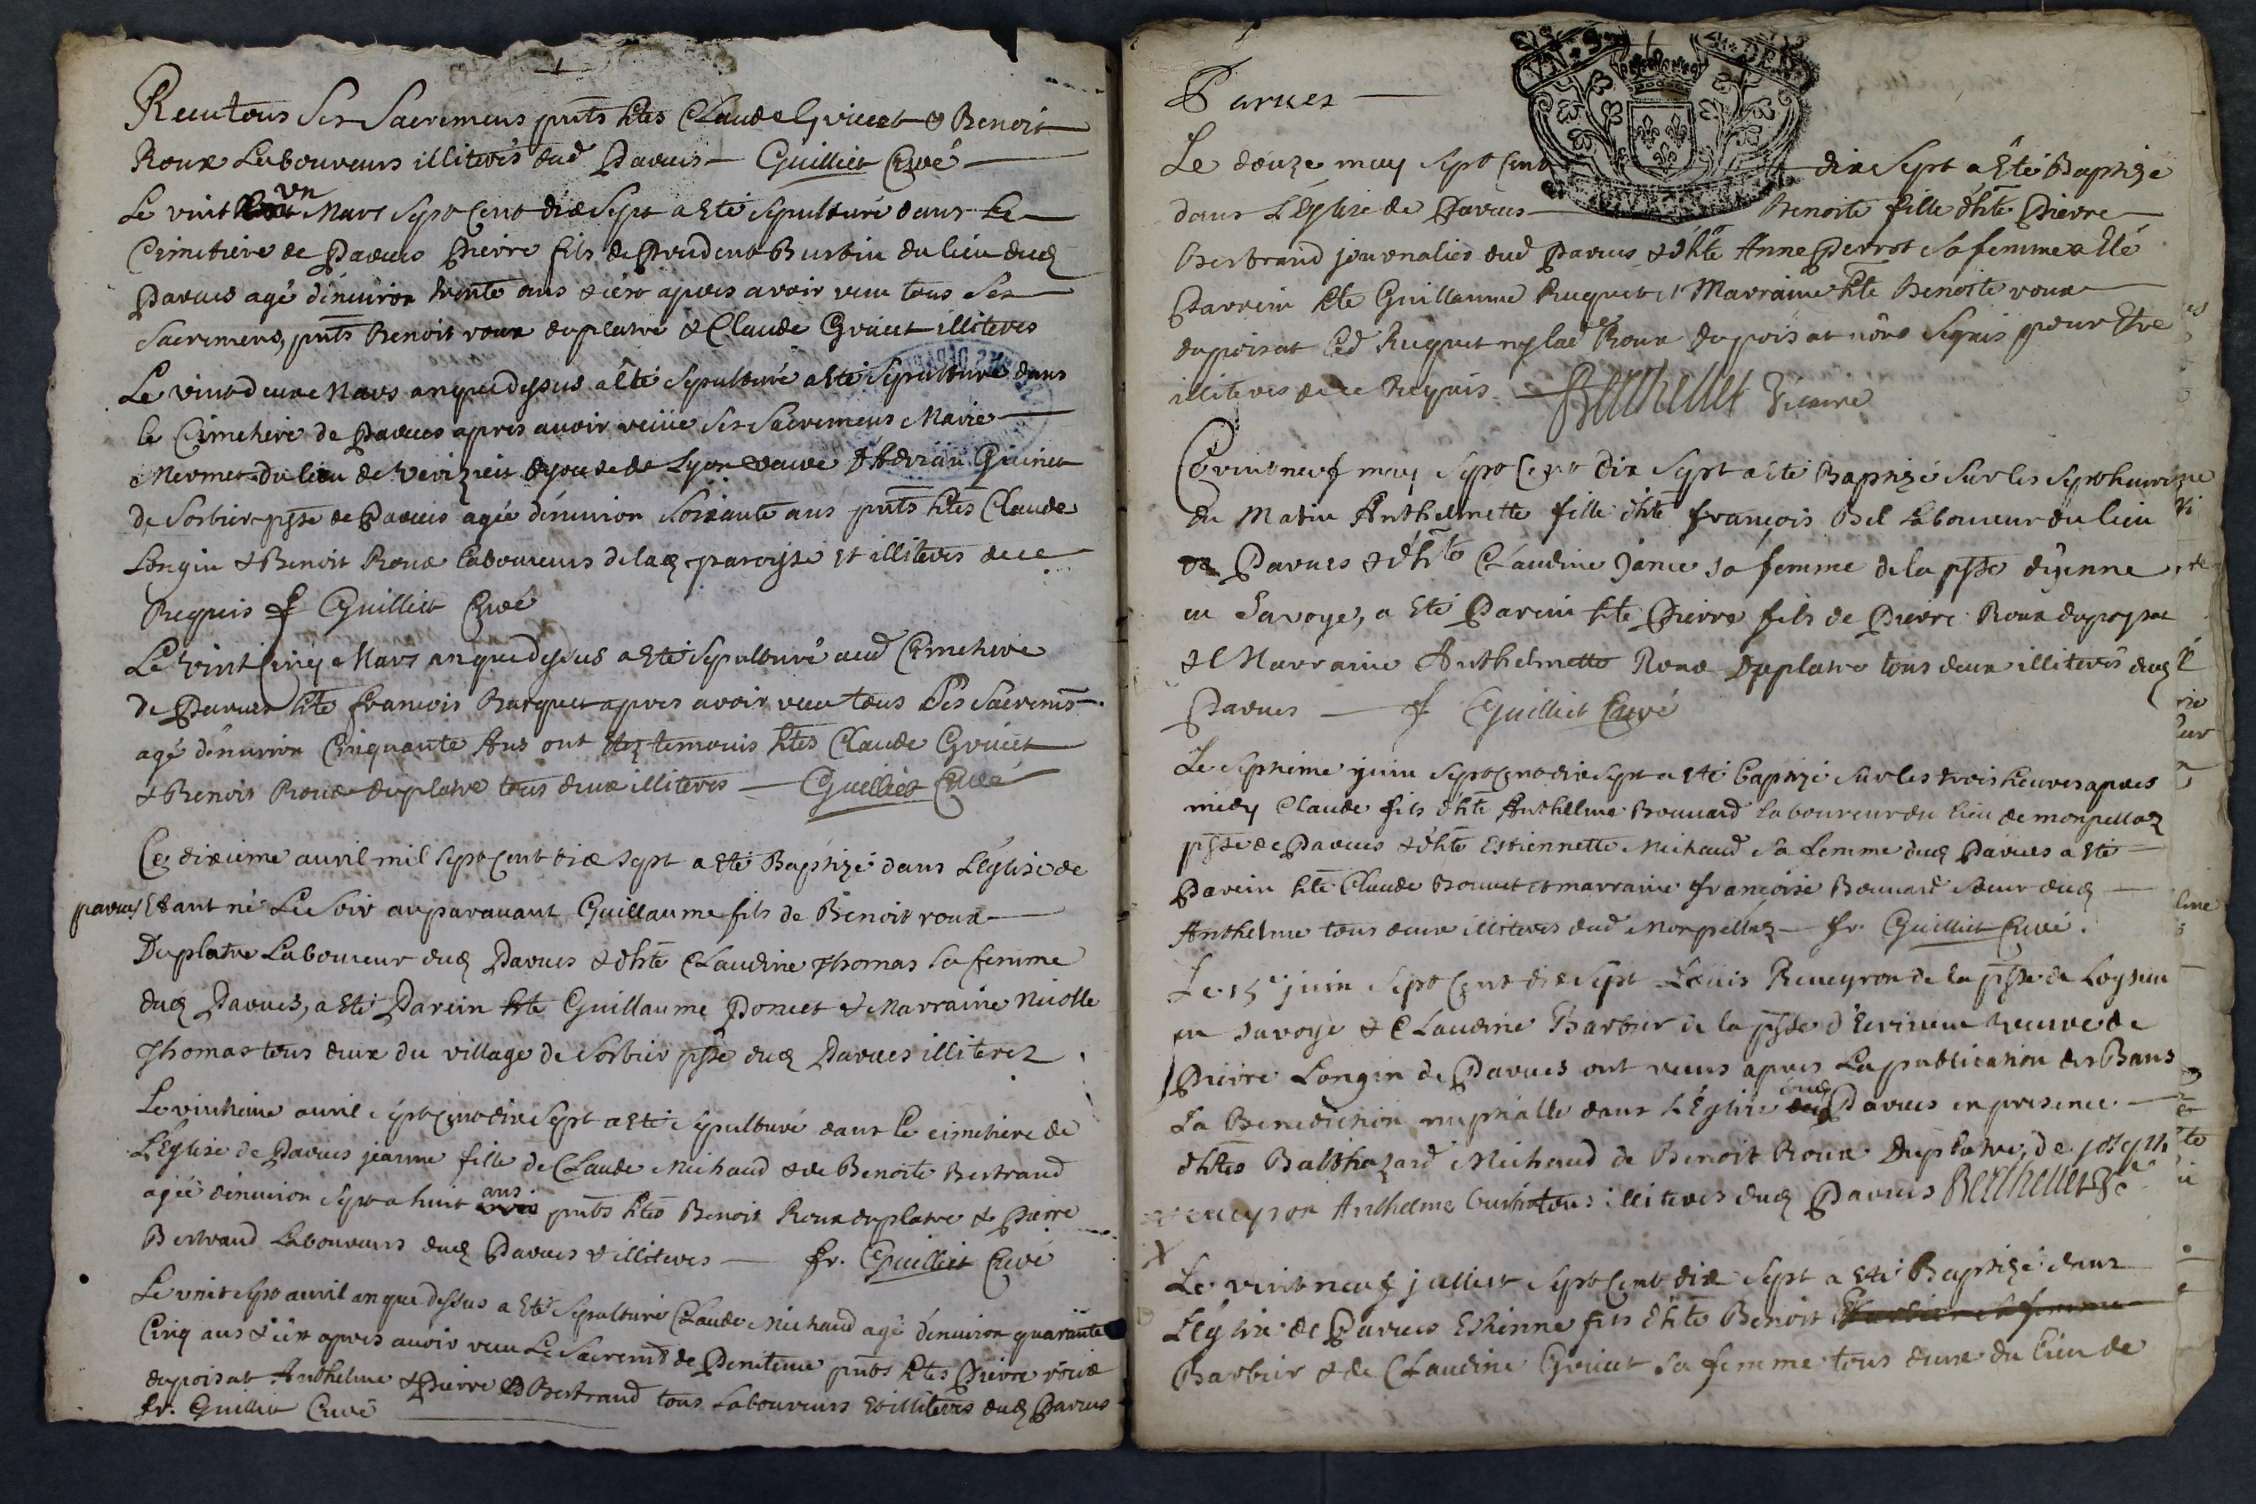 Receu tous Ses Sacremens pnts htes Claude Griuet & Benoit
Roux Laboureurs illiterés dud Parues Guilliet Curé
Le vint un Mars Sept Cent dix Sept a Eté Sepulturé dans Le
Cimetiere de Parues Pierre fils de Prudent Burtin du lieu dud
Parues agé d'enuiron trente ans & c'est apres avoir receu tous Ses
Sacremens, pnts Benoit roux duplatre & Claude Griuet illiteres
Le vint deux Mars an que dessus a êté Sepulturé a êté Sepulturé dans
le Cimetiere de Parues apres auoir receue Ses Sacremens Marie
Mermet du lieu de veuve d'Adrian Guinet
de Sorbier psse de Parues agée d'enuiron Soixante ans pnts htes Claude
Longin & Benoit Roux laboureurs de lad paroisse et illiteres de ce
Requis f Guilliet Curé
Le vint Cinq Mars an que dessus a êté Sepulturé aud Cimetiere
de Parues hte francois Ruquet apres avoir receu tous Ses Sacremts
agé d'enuiron Cinquante Ans ont temoins htes Claude Griuet
& Benoit Roux duplatre tous deux illiteres Guilliet Curé
Ce dixieme auril mil Sept Cent dix Sept a eté Baptizé dans L'Eglise de
parues Etant né Le Soir auparauant Guillaume fils de Benoit roux
Duplatre Laboureur dud Parues & d'hte Claudine Thomas Sa femme
dud Parues, a êté Parein hte Guillaume Poncet & Marraine Nicolle
Thomas tous deux du village de Sorbier psse dud Parues illiterez
Le vintieme auril Sept Cent dix Sept a êté Sepulturé dans le cimetiere de
L'Eglise de Parues jeanne fille de Claude Michaud & de Benoite Bertrand
agée d'enuiron Sept a huit ans pnts htes Benoit Roux duplatre & Pierre
Bertrand Laboureurs dud Parues & illiteres fr. Guilliet Curé
Le vint Sept auril an que dessus a Eté Sepulturé Claude Michaud agé d'enuiron quarante
Cinq ans & c'est apres auoir receu Le Sacremt de Penitence pnts htes Pierre roux
dupoisat Anthelme & Pierre Bertrand tous Laboureurs & illiteres dud Parues
fr. Guilliet Curé
Parues
Le douze may Sept Cent dix Sept a êté Baptizé
dans L'Eglise de Parues Benoite fille d'hte Pierre
Bertrand journalier dud Parues & d'hte Anne Perrot Sa femme a êté
Parrein hte Guillaume Ruquet & Marraine hte Benoite roux
dupoisat led Ruquet ny lad Roux dupoisat n'ont Signés pour Etre
illiteres de ce Requis Berthellet Vicaire
Ce vint neuf may Sept Cent dix Sept a êté Baptizé Sur les Sept heures
du Matin Anthelmette fille d'hte françois Bel Laboureur du lieu
de Parues & d'hte Claudine Sa femme de la psse d'yenne
en Savoye, a êté Parein hte Pierre fils de Pierre Roux dupoysat
& Marraine Anthelmette Roux Duplatre tous deux illiterés dud
Parues f Guilliet Curé
Le Septieme juin Sept Cent dix Sept a êté baptizé Sur les trois heures apres
midy Claude fils d'hte Anthelme Bouuard laboureur du lieu de monpellaz
psse de Parues & d'hte Estiennette Michaud Sa femme dud Parues a êté
Parein hte Claude Bonnet & marraine françoise Bouuard Soeur dud
Anthelme tous deux illiteres dud Monpellaz fr. Guilliet Curé.
Le 15e juin Sept Cent dix Sept Louis Reueyron de la psse de Loysieu
en Savoye & Claudine Barbier de la psse d' veuve de
Pierre Longin de Parues ont receus apres La publication des Bans
La Benediction nuptialle dans L'Eglise dud Parues en presence
d'htes Balthazard Michaud de Benoit Roux Duplatre, de joseph
Reueyron Anthelme tous illiteres dud Parues Berthellet Vre
Le vint neuf juillet Sept Cent dix Sept a êté Baptizé dans
L'Eglise de Parues Etienne fils d'hte Benoit
Barbier & de Claudine Griuet Sa femme tous deux du lieu de